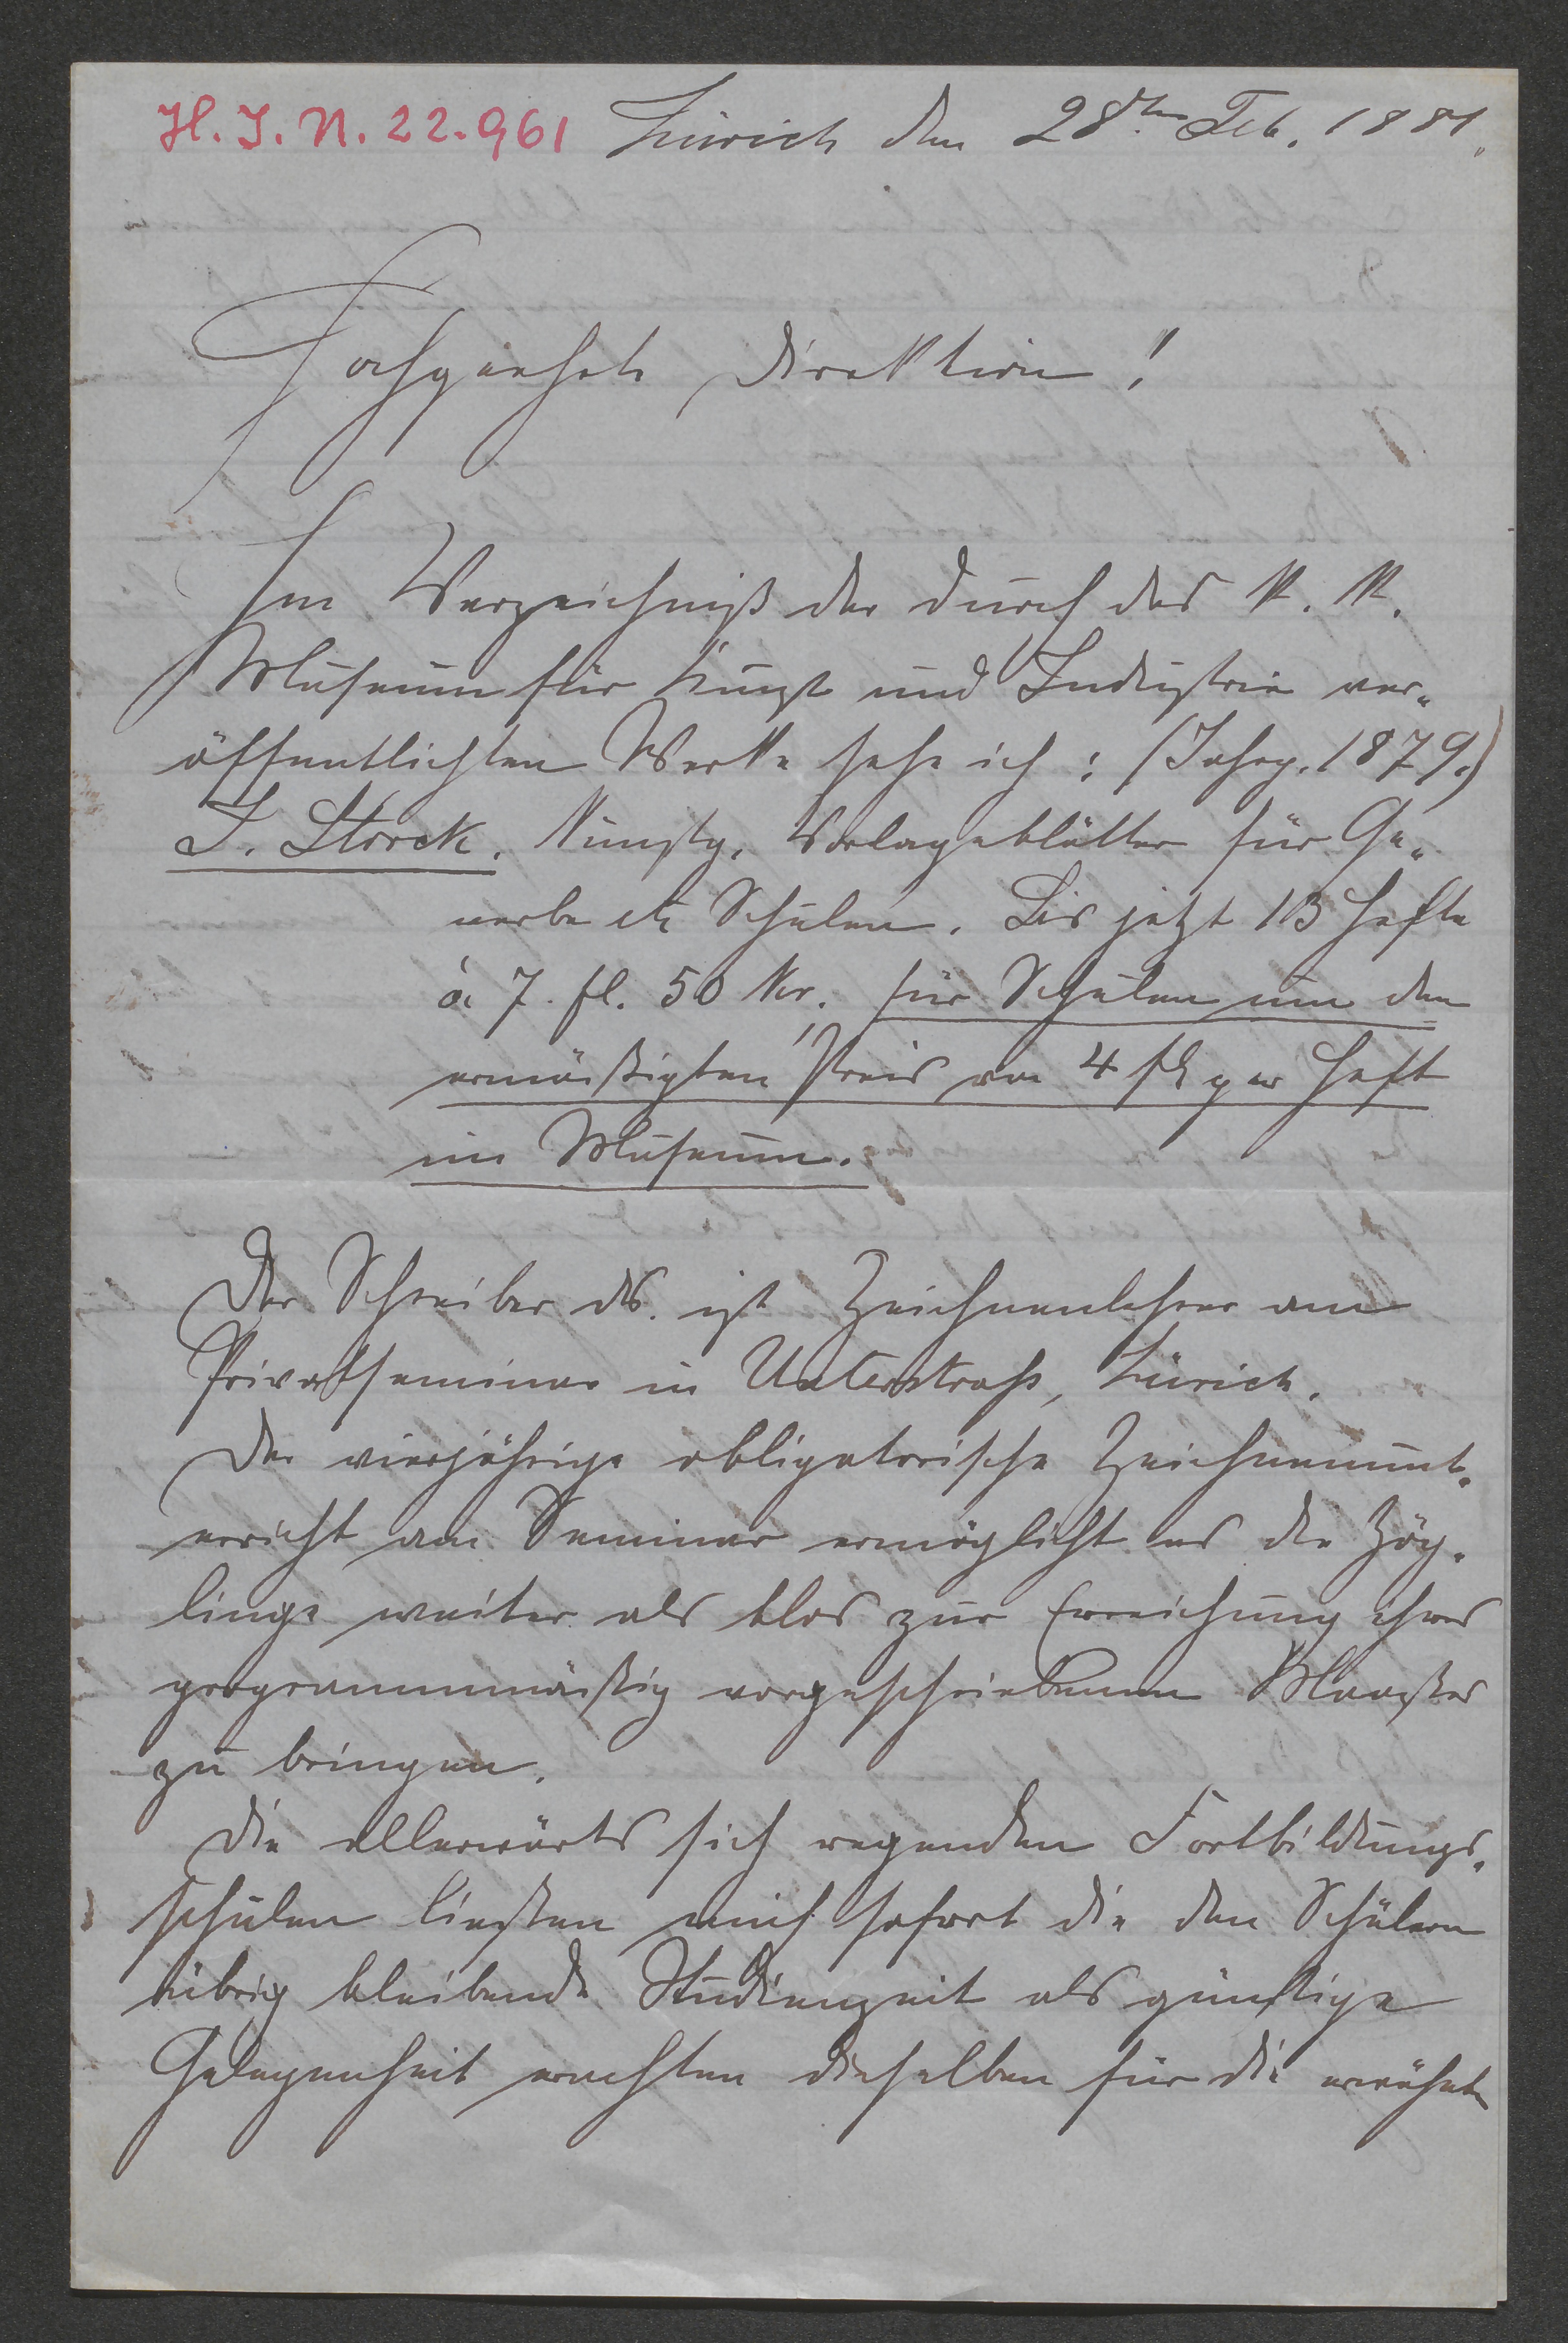 H. I. N. 22.961 Zürich den 28ten Feb. 1881.
Hochgeehrte Direktion!
Im Verzeichniß der durch das K. K.
Museum für Kunst und Industrie ver„
öffentlichten Werke sehe ich: (Jahrg. 1879.)
J. Storck. Kunstg. Vorlageblätter für Ge„
werbe etc Schulen. Bis jetzt 13 Hefte
á 7. fl. 50 Kr. für Schulen um den
ermäßigten Preis von 4 fl per Heft
im Museum.
Der Schreiber ds. ist Zeichnenlehrer am
Privatseminar in Unterstrass, Zürich.
Der vierjährige obligatorische Zeichnenunt„
erricht am Seminar ermöglicht es die Zög„
linge weiter als blos zur Erreichung ihres
programmmäßig vorgeschriebenen Maaßes
zu bringen.
Die allerwärts sich regenden Fortbildungs„
schulen ließen mich sofort die den Schülern
übrig bleibende Studienzeit als günstige
Gelegenheit erachten dieselben für die erwähnte